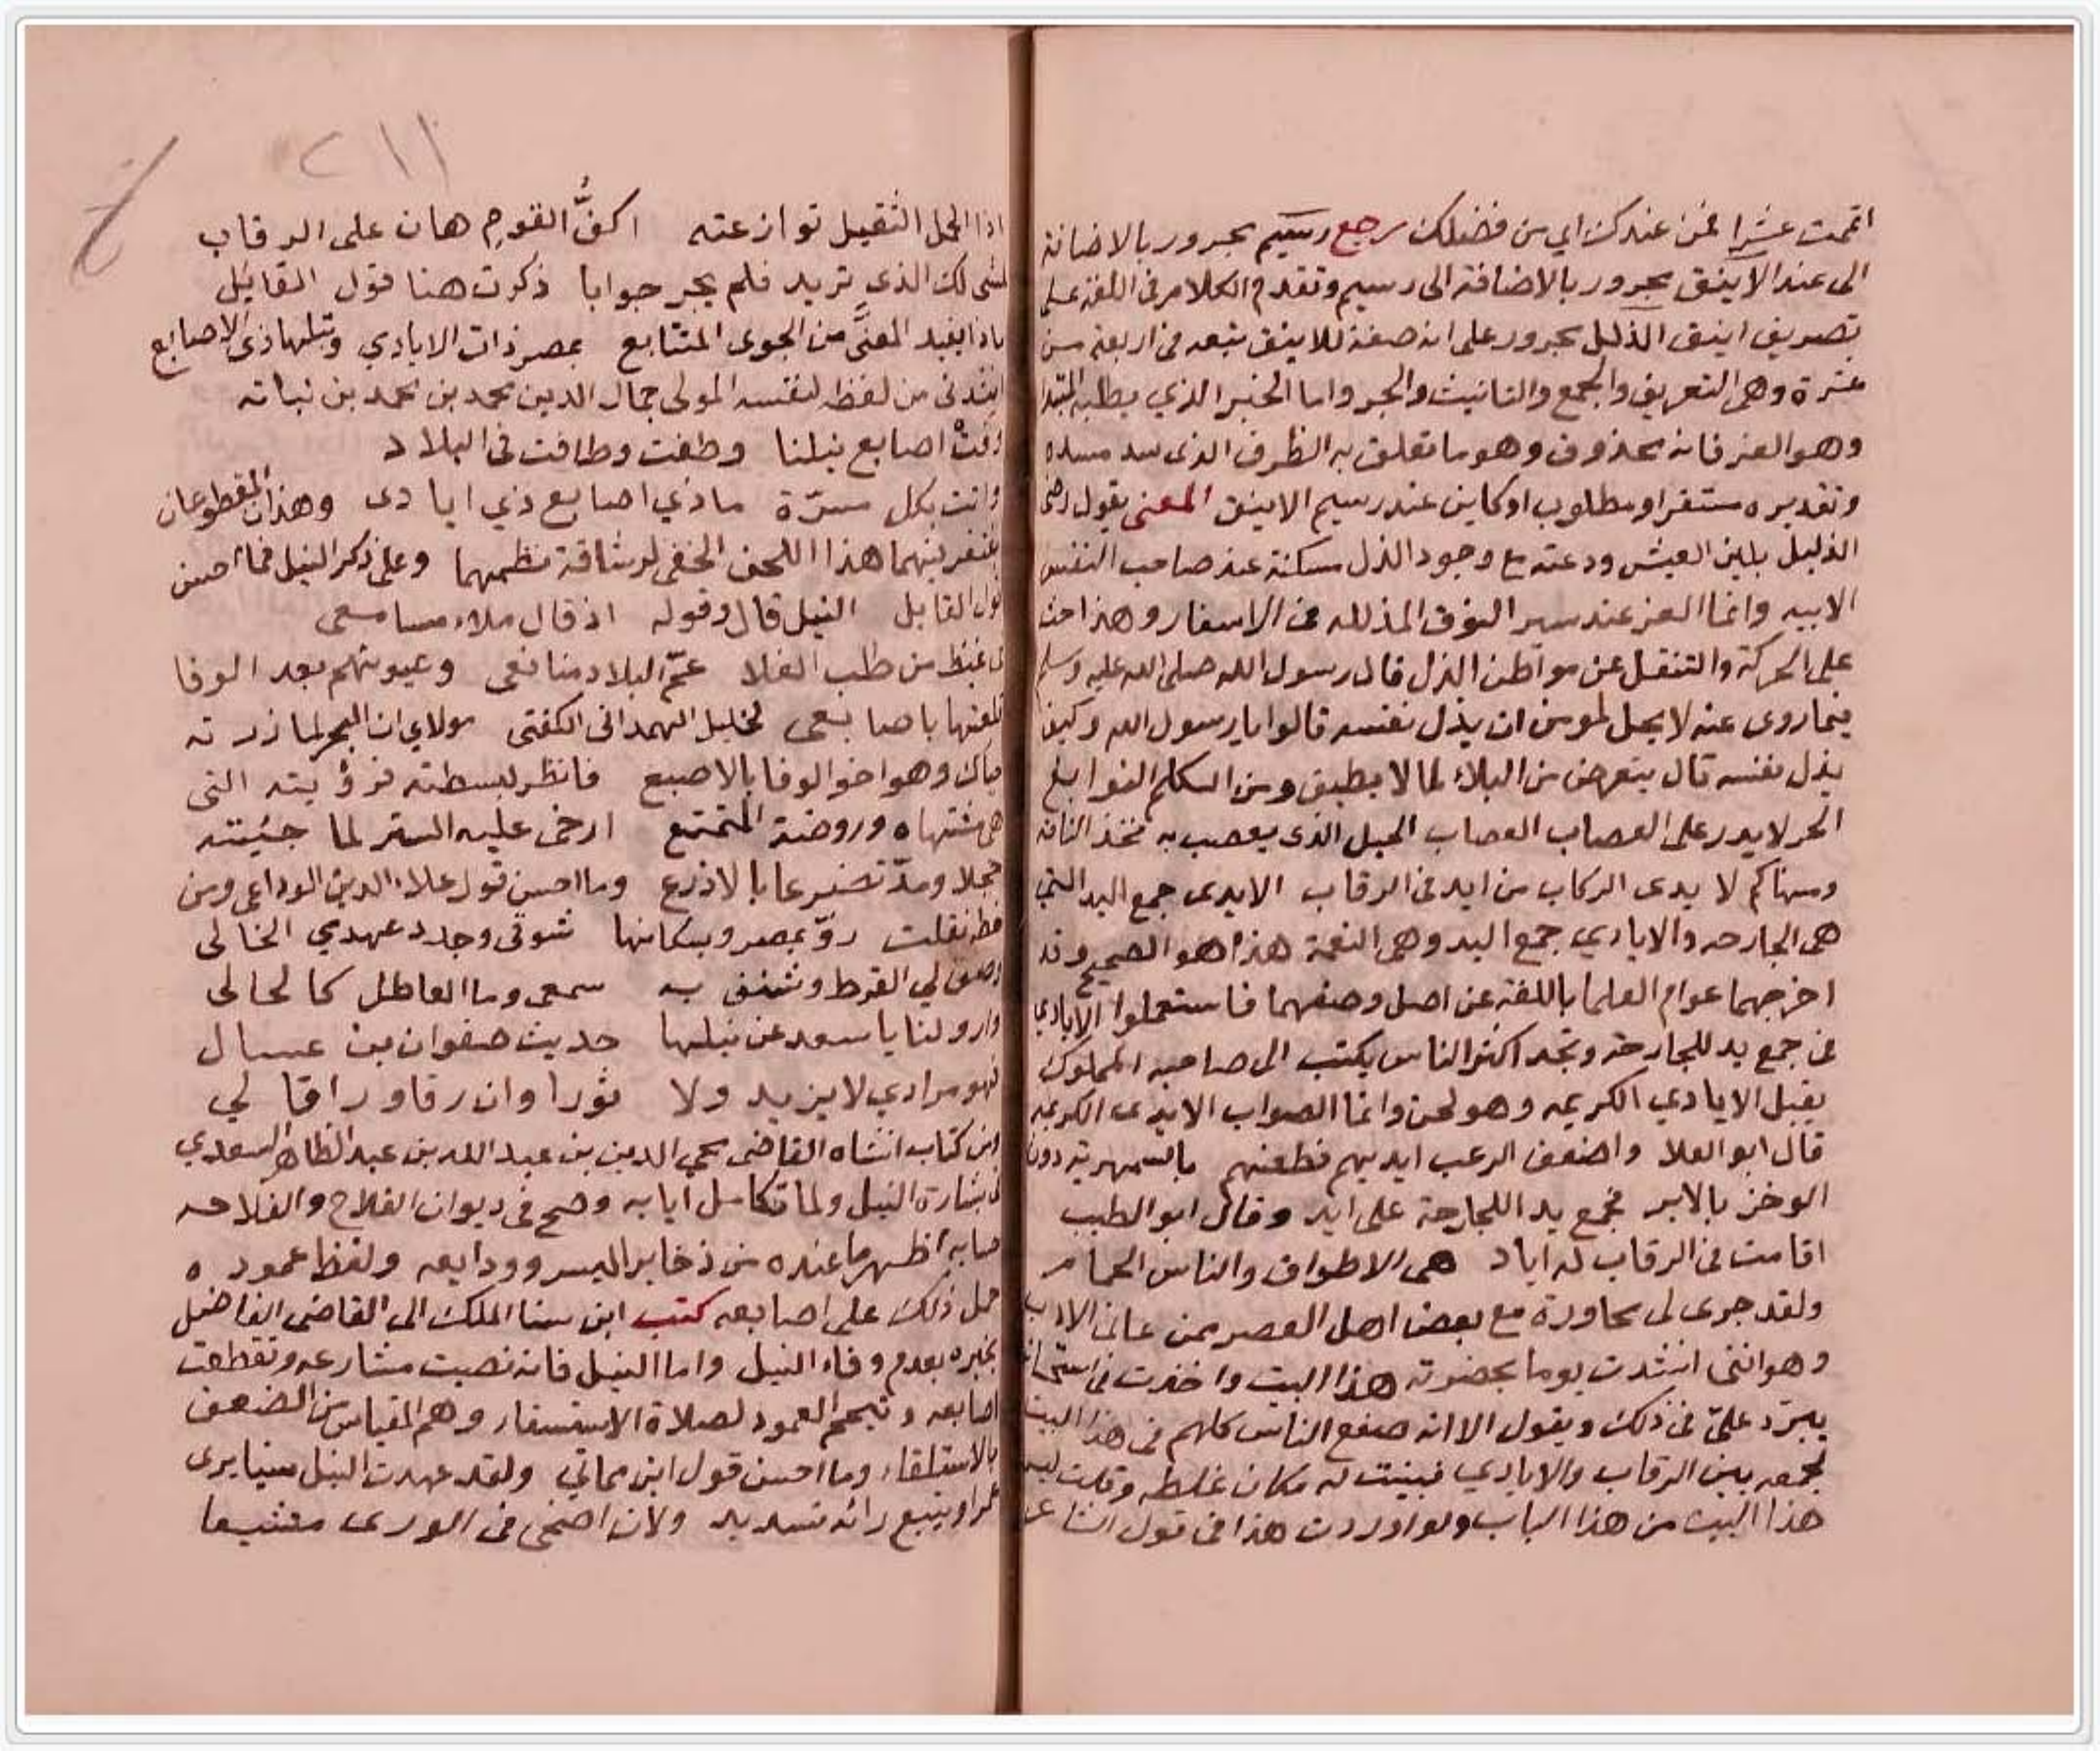 اتممت عشرا فمن عندك اي من فضلك رجع رسيم مجرور بالاضافة
الى عند الاينق مجرور بالاضافة الى رسيم وتقدم الكلام في اللغة على
تصريف اينق الذلل مجرور على انه صفة للاينق تتبعه في اربعة من
عشرة وهي التعريف والجمع والتانيث والجر واما الخبر الذي يطلبه المبتدا
وهو العز فانه محذوف وهو ما تعلق به الظرف الذي سد مسده
وتقديره مستقر او مطلوب او كاين عند رسيم الاينق المعنى يقول رضى
الذليل بلين العيش ودعته مع وجود الذل مسكنة عند صاحب النفس
الابيه وانما العز عند سير النوق المذلله في الاسفار وهذا حث
على الحركة والتنقل عن مواطن الذل قال رسول الله صلى الله عليه وسلم
فيما روي عنه لا يحل لمومن ان يذل نفسه قالوا يا رسول الله وكيف
يذل نفسه قال يتعرض من البلاء لما لا يطيق ومن الكلم النوابغ
الحر لا يدر على العصاب العصاب الحبل الذي يعصب به فخذ الناقة
ومنها كم لا يدى الركاب من ايد في الرقاب الايدى جمع اليد التي
هي الجارحه والايادي جمع اليد وهي النعمة هذا هو الصحيح وقد
اخرجهما عوام العلما باللغة عن اصل وضعهما فاستعملوا الايادي
في جمع يد للجارحة وتجد اكثر الناس يكتب الى صاحبه المملوك
يقبل الايادي الكريمه وهو لحن وانما الصواب الايدى الكريمه
قال ابو العلا واضعف الرعب ايديهم فطعنهم بالسمهرية دون
الوخز بالابر فجمع يد اللجارحة على ايد وقال ابو الطيب
اقامت في الرقاب له اياد هي الاطواق والناس الحمام
ولقد جرى لى محاورة مع بعض اهل العصر ممن عانى الادب
وهو انني انشدت يوما بحضوته هذا البيت واخذت في استحسانه
يبرد علىّ في ذلك ويقول الا انه صفع الناس كلهم في هذا البيت
لجمعه بين الرقاب والايادي فبينت له مكان غلطه وقلت ليس
هذا البيت من هذا الباب ولو اوردت هذا في قول الشاعر
اذا الحمل الثقيل توازعته اكفُّ القوم هان على الرقاب
لمشى لك الذي تريد فلم يحر جوابا ذكرت هنا قول القائيل
ماذا يفيد المعنَّى من الجوى المتتابع بمصر ذات الايادي ونيلها ذي الاصابع
انشدني من لفظه لنفسه المولى جمال الدين محمد بن محمد بن نباته
زادت اصابع نيلنا وطغت وطافت في البلاد
واتت بكل مسرّة ماذي اصابع ذي ايادى وهذان المقطوعان
يغتفر فيهما هذا اللحن الخفى لرشاقة نظمهما وعلى ذكر النيل فما احسن
قول القايل النيل قال وقوله اذ قال ملاء مسامعي
في غيظ من طلب الغلا عمّ البلاد منافعى وعيونهم بعد الوفا
قلعتها باصابعى لخليل الهمدانى الكفتى مولاي ان البحر لما زرته
حياك وهو اخو الوفا بالاصبع فانظر لبسطته فرؤيته التى
هي مشتهاه وروضة المتمتع ارخى عليه الستر لما جئيته
خجلا ومدّ تضرعا بالاذرع وما احسن قول علاء الدين الوداعى ومن
خطه نقلت روّ بمصر وبسكانها شوقى وجدد عهدي الخالى
وصف لي القرط وشنف به سمعى وما العاطل كالحالى
وارو لنا يا سعد عن نيلها حديث صفوان بن عسال
فهو مرادي لا يزيد ولا ثورا وان رقا وراقا لي
من كتاب انشاه القاضى محي الدين بن عبد الله بن عبد الظاهر السعدي
في بشارة النيل ولما تكامل ايابه وصح في ديوان الفلاح والفلاحه
حسابه اظهر ما عنده من ذخاير اليسر وودايعه ولفظ عموده
حمل ذلك على اصابعه كتب ابن سنا الملك الى القاضى الفاضل
يخبره بعدم وفاء النيل واما النيل فانه نضبت مشارعه وتقطعت
اصابعه وتيمم العمود لصلاة الاستسقار وهم المقياس من الضعف
بالاستلقاء وما احسن قول ابن مماتي ولقد عهدت النيل سنيا يرى
عمرا ويتبع رائه تسديد ولان اضحى في الورى متشيعا